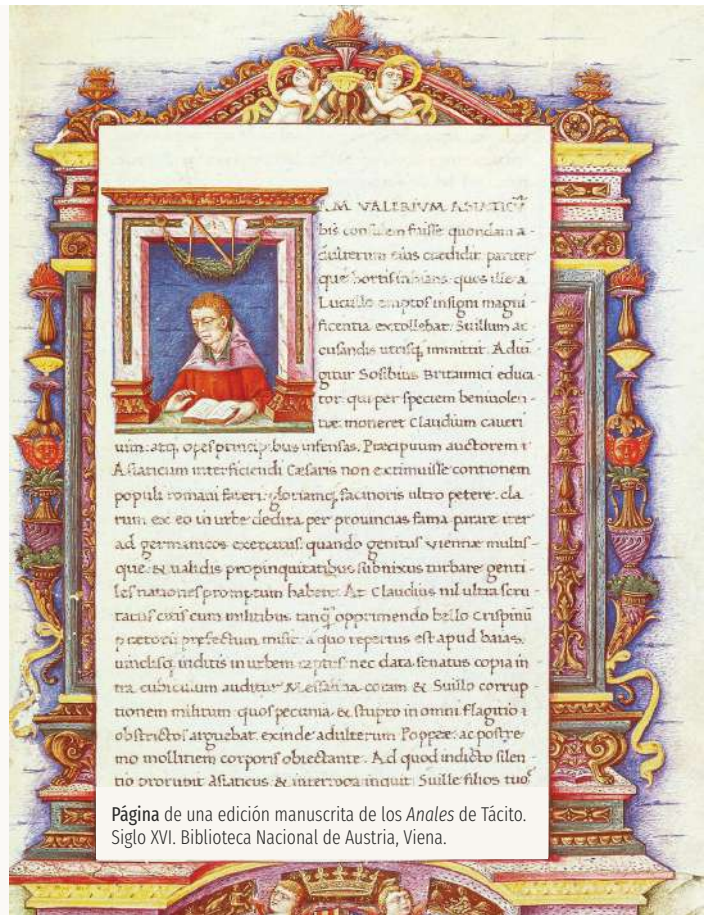 AM VALERIVM ASIATICV̄
bis consulem fuisse quondam a-
dulterum eius credidit pariter
que hortis inhians quos ille a
Lucullo emptos insigni magni-
ficentia extollebat. Suillum ac-
cusandis utrisq; immittit. Adiu-
gitur Sosibius Britannici educa-
tor qui per speciem beniuolen-
tiæ moneret Claudium caueri
uim: atq; opes principibus infensas. Præcipuum auctorem
Asiaticum interficiendi Cæsaris non extimuisse contionem
populi romani fateri: gloriamq; facinoris ultro petere. cla
rum ex eo in urbe dedita per prouincias fama parare iter
ad germanicos exercitus. quando genitus Viennæ multis-
que & ualidis propinquitatibus subnixus turbare genti-
les nationes promptum haberet. At Claudius nil ultra scru
tatus citis cum militibus tanq̄ opprimendo bello Crispinū
prætorii præfectum misit: a quo repertus est apud baias.
uinclisq; inditis in urbem raptus. nec data senatus copia in
tra cubiculum auditur Messalina coram & Suillo corrup-
tionem militum quos pecunia & stupro in omni flagitio
obstrictos arguebat. exinde adulterum Poppeæ: ac postre
mo mollitiem corporis obiectante. Ad quod indicto silen-
tio prorupit asiaticus & interroga inquit Suille filios tuos
Página de una edición manuscrita de los Anales de Tácito.
Siglo XVI. Biblioteca Nacional de Austria, Viena.